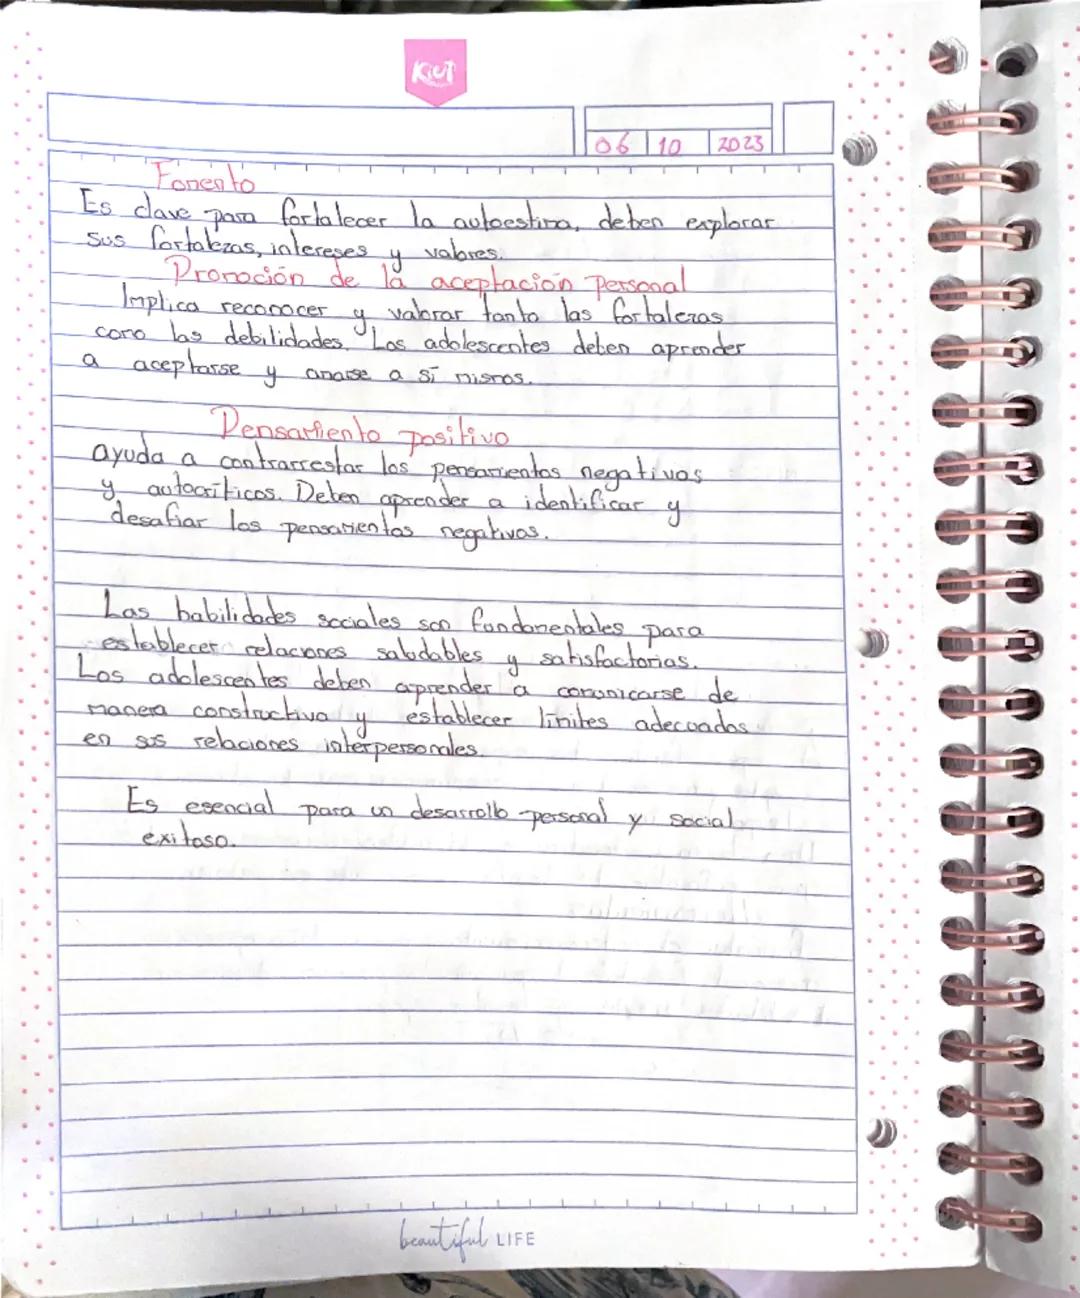 Kiut
06 10 2023
Fomento
Es clave para fortalecer la autoestima, deben explorar
sus fortalezas, intereses y valores.
Promoción de la aceptación personal
Implica reconocer y valorar tanto las fortalezas
como las debilidades. Los adolescentes deben aprender
a aceptarse y amarse a sí mismos.
Pensamiento positivo
ayuda a contrarrestar los pensamientos negativos
y autocríticos. Deben aprender a identificar y
desafiar los pensamientos negativos.
Las habilidades sociales son fundamentales para
establecer relaciones saludables y satisfactorias.
Los adolescentes deben aprender a comunicarse de
manera constructiva y establecer límites adecuados
en sus relaciones interpersonales.
Es esencial para un desarrollo personal y social
exitoso.
beautiful LIFE